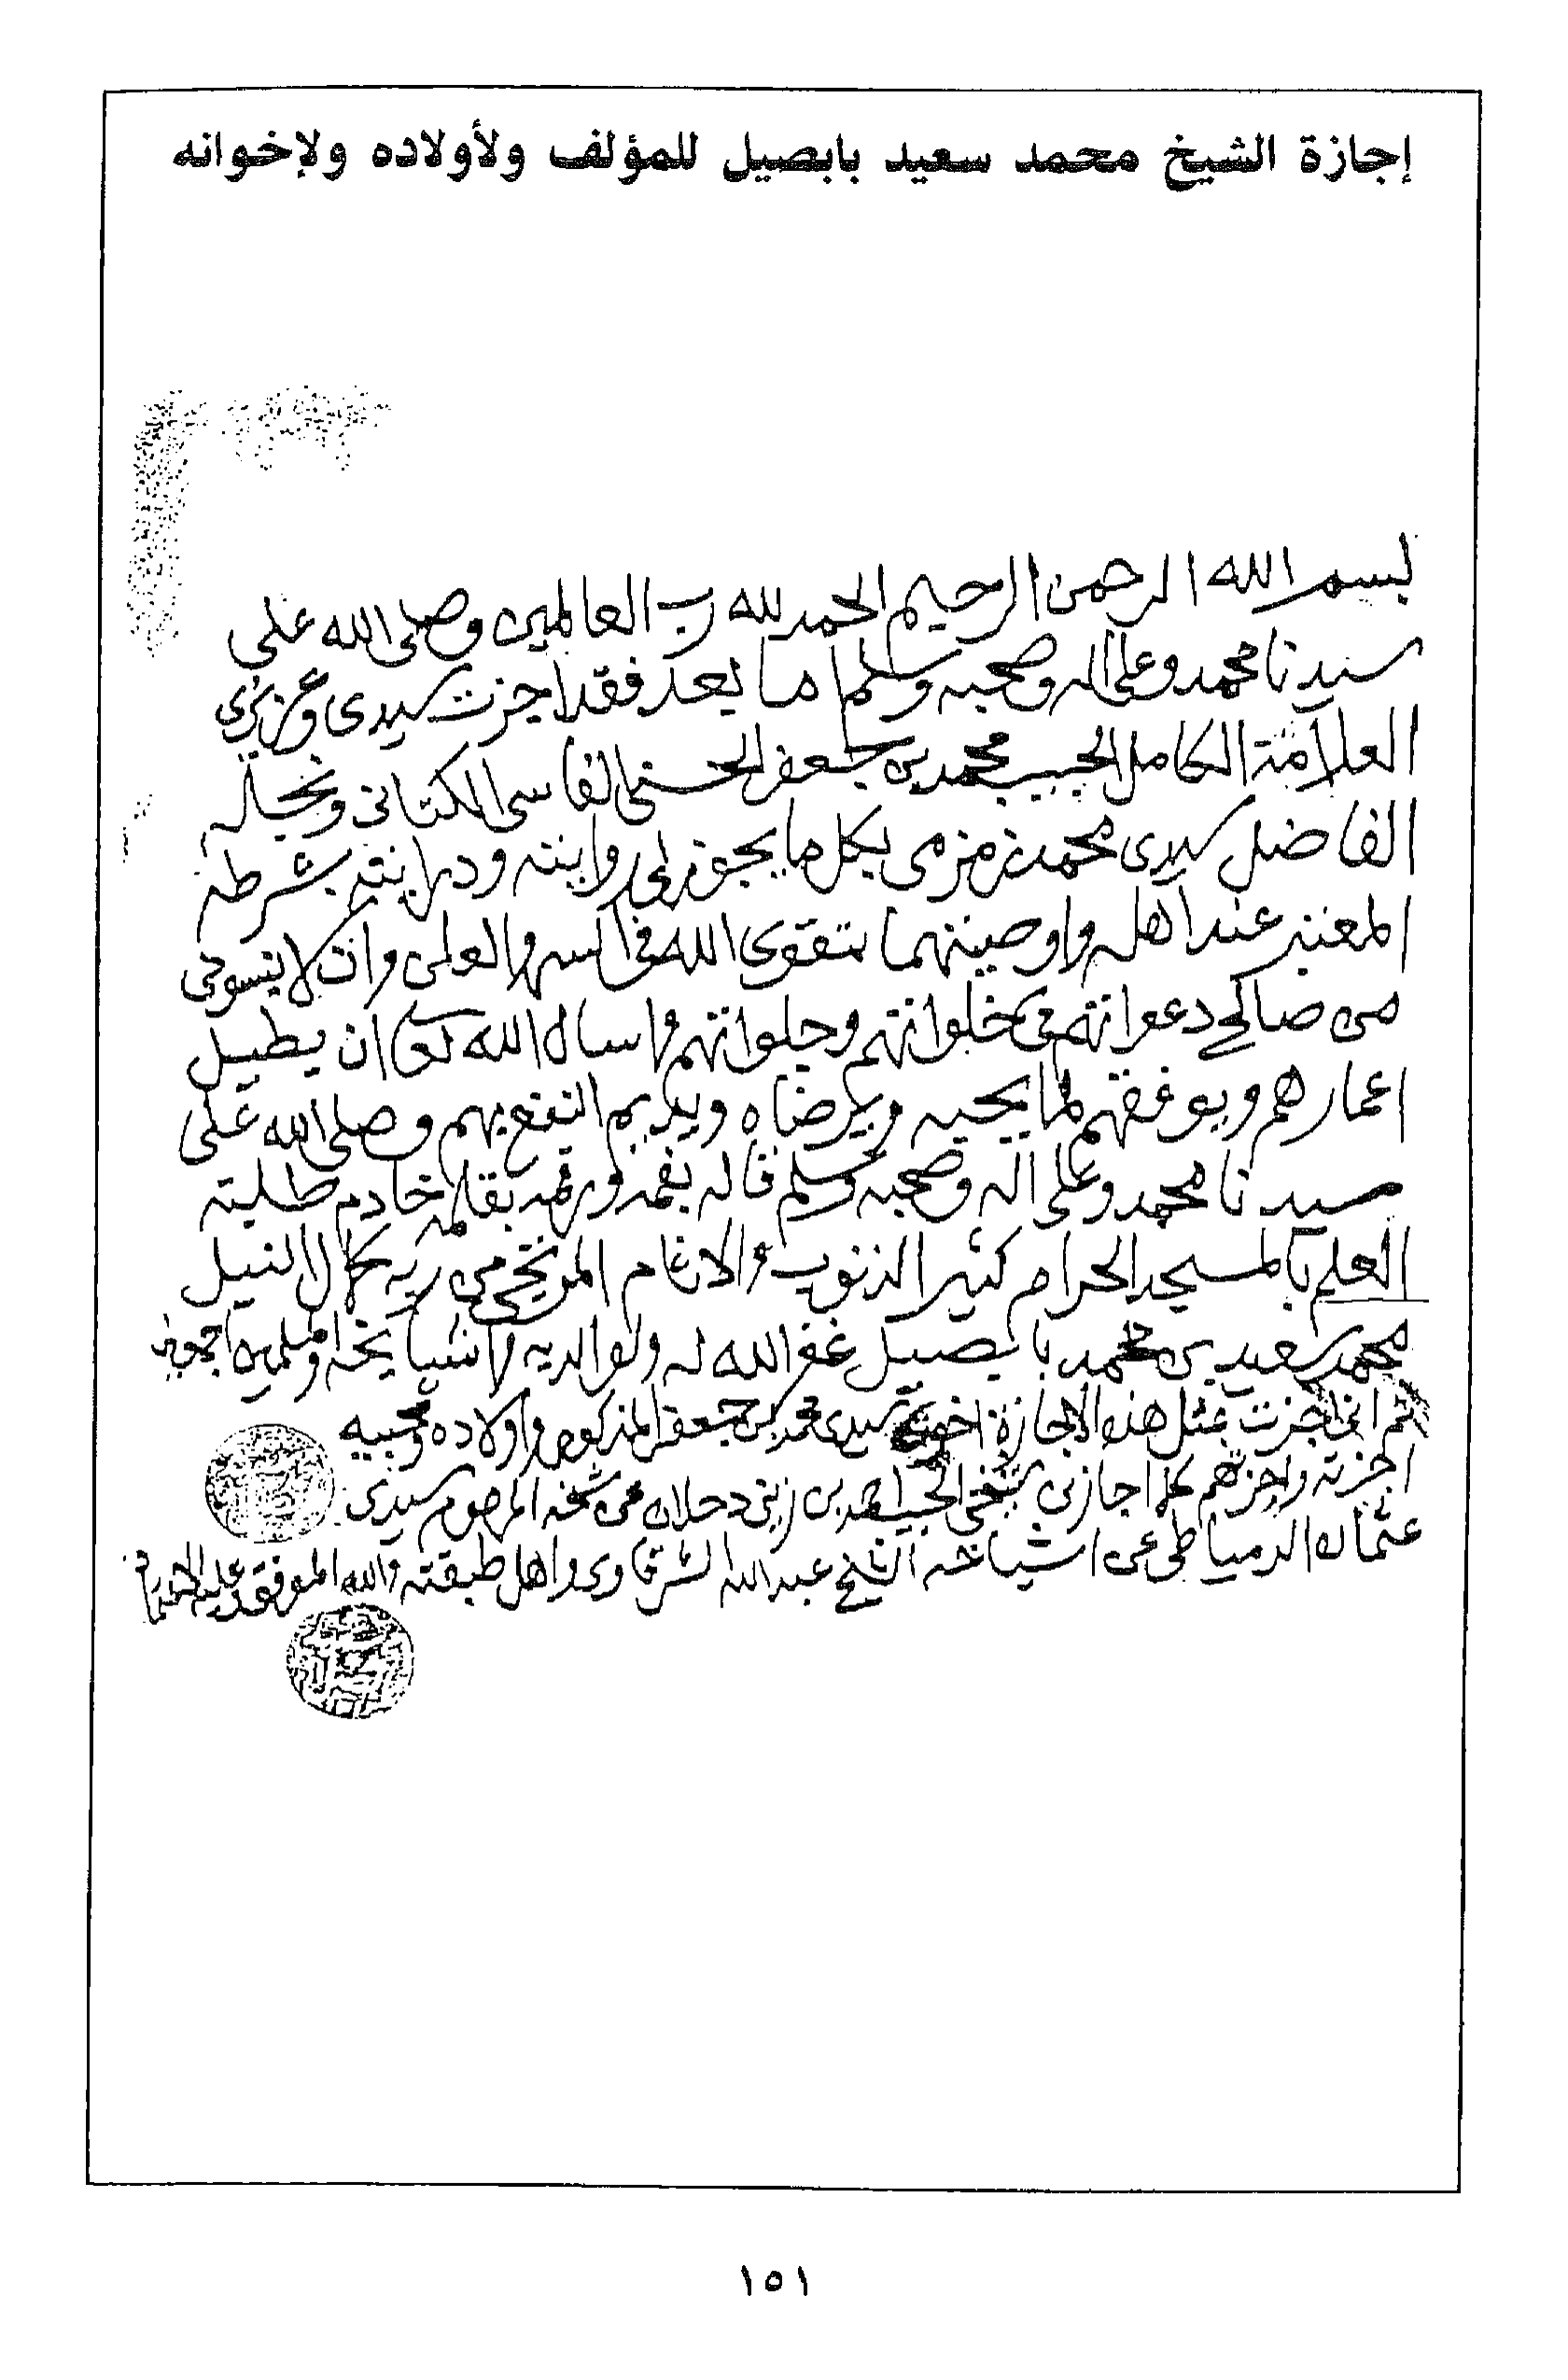 إجازة الشيخ محمد سعيد بابصيل للمؤلف ولأولاده ولإخوانه
بسم الله الرحمن الرحيم الحمد لله رب العالمين وصلى الله على
سيدنا محمد وعلى اله وصحبه وسلم اما بعد فقد اجزت سيدى وعزيزى
العلامة الكامل الحبيب محمد بن جعفر الحسنى الفاسى الكتانى ونجله
الفاضل سيدى محمد الزمزمى بكل ما يجوز لى روايته ودرايته بشرطه
المعتبر عند اهله واوصيتهما بتقوى الله فى السر والعلن وان لا ينسونى
من صالح دعواتهم فى خلواتهم وجلواتهم واسال الله تعالى ان يطيل
اعمارهم ويوفقهم لما يحبه ويرضاه ويديم النفع بهم وصلى الله على
سيدنا محمد وعلى اله وصحبه وسلم قاله بفمه ورقمه بقلمه خادم طلبة
العلم بالمسجد الحرام كثير الذنوب والاثام المرتجى من ربه كمال النيل
محمد سعيد بن محمد بابصيل غفر الله له ولوالديه ولاشياخه والمسلمين اجمعين
ثم انى اجزت بمثل هذه الاجازة اخوة سيدى محمد بن جعفر المذكور واولاده ومحبيه
اجزته واجزتهم كما اجازنى شيخى الحبيب احمد بن زينى دحلان عن شيخه المرحوم سيدى
عثمان الدمياطى عن اشياخه الشيخ عبد الله الشرقاوى واهل طبقته والله الموفق وعليه
١٥١